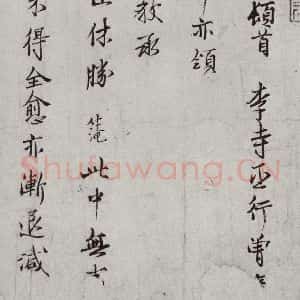 頓首 李寺丞行曾
亦領
教承
休勝 仲淹 此中無
未得全愈亦漸退減
Shufawang.CN